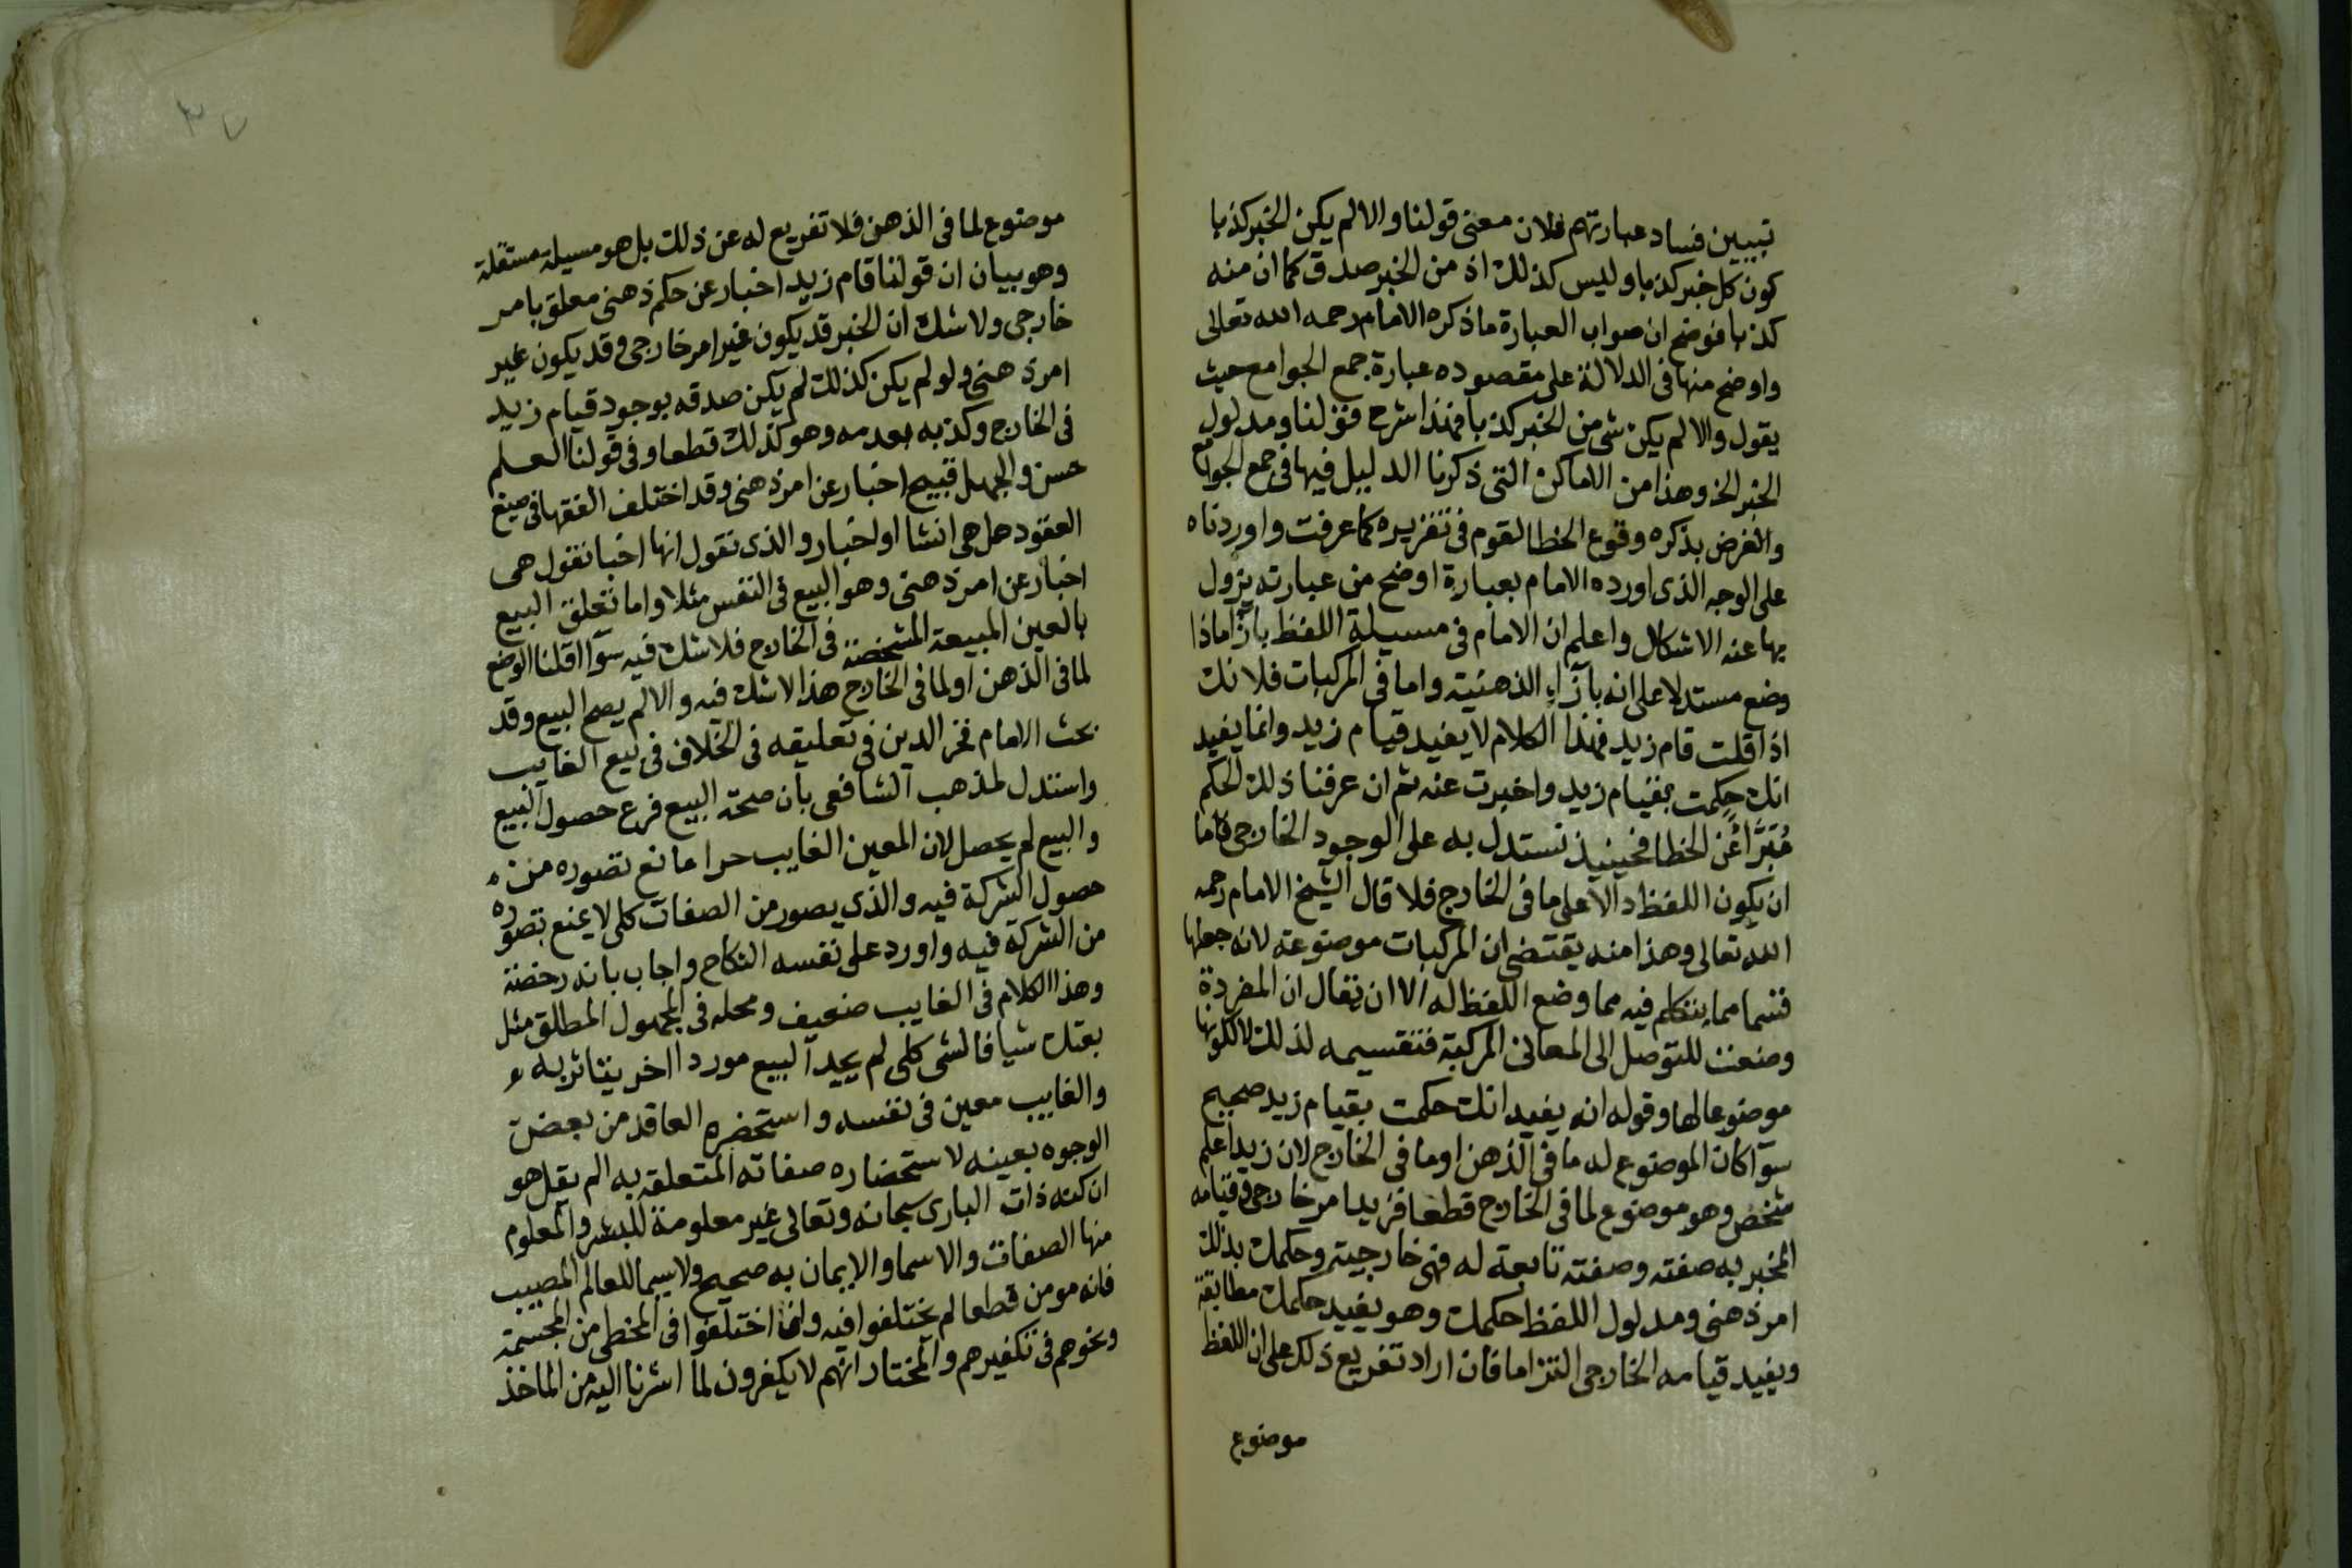 تبيين فساد عبارتهم فلان معنى قولنا والا لم يكن الخبر كذبا
كون كل خبر كذبا وليس كذلك اذ من الخبر صدق كما ان منه
كذبا فوضح ان صواب العبارة ما ذكره الامام رحمه الله تعالى
واوضح منها في الدلالة على مقصوده عبارة جمع الجوامع حيث
يقول والا لم يكن شي من الخبر كذبا فهذا شرح قولنا ومدلول
الخبر الخ وهذا من الاماكن التي ذكرنا الدليل فيها في جمع الجوامع
والغرض بذكره وقوع الخطا لقوم في تقريره كما عرفت واوردناه
على الوجه الذي اورده الامام بعبارة اوضح من عبارته يزول
بها عنه الاشكال واعلم ان الامام في مسيلة اللفظ بازا ماذا
وضع مستدلا على انه بازاء الذهنية واما في المركبات فلانك
اذا قلت قام زيد فهذا الكلام لا يفيد قيام زيد وانما يفيد
انك حكمت بقيام زيد واخبرت عنه ثم ان عرفنا ذلك الحكم
مُبَرَّأ عن الخطا فحينيذ نستدل به على الوجود الخارجي فاما
ان يكون اللفظ دالا على ما في الخارج فلا قال الشيخ الامام رحمه
الله تعالى وهذا منه يقتضي ان المركبات موضوعة لانه جعلها
قسما مما يتكلم فيه مما وضع اللفظ له الا ان تقال ان المفردة
وضعت للتوصل الى المعاني المركبة فتقسيمه لذلك لا لكونها
موضوعا لها وقوله انه يفيد انك حكمت بقيام زيد صحيح
سوآ كان الموضوع له ما في الذهن او ما في الخارج لان زيدا علم
شخص وهو موضوع لما في الخارج قطعا فزيد امر خارجي وقيامه
المخبر به صفته وصفته تابعة له فهي خارجية وحكمك بذلك
امر ذهني ومدلول اللفظ حكمك وهو يفيد حكمك مطابقة
ويفيد قيامه الخارجي التزاما فان اراد تفريع ذلك على ان اللفظ
موضوع
٣٧
موضوع لما في الذهن فلا تفريع له عن ذلك بل هو مسيلة مستقلة
وهو بيان ان قولنا قام زيد اخبار عن حكم ذهني معلق بامر
خارجي ولا شك ان الخبر قد يكون غير امر خارجي وقد يكون غير
امر ذهني ولو لم يكن كذلك لم يكن صدقه بوجود قيام زيد
في الخارج وكذبه بعدمه وهو كذلك قطعا وفي قولنا العلم
حسن والجهل قبيح اخبار عن امر ذهني وقد اختلف الفقها في صيغ
العقود هل هي انشا او اخبار والذي نقول انها اخبا نقول هي
اخبار عن امر ذهني وهو البيع في النفس مثلا واما تعلق البيع
بالعين المبيعة المشخصة في الخارج فلا شك فيه سوآ اقلنا الوضع
لما في الذهن او لما في الخارج هذا لا شك فيه والا لم يصح البيع وقد
بحث الامام فخر الدين في تعليقه في الخلاف في بيع الغايب
واستدل لمذهب الشافعي بان صحة البيع فرع حصول البيع
والبيع لم يحصل لان المعين الغايب حرا مانع تصوره من
حصول الشركة فيه والذي يصور من الصفات كلي لا يمنع تصوره
من الشركة فيه واورد على نفسه النكاح واجاب بانه رخصة
وهذا الكلام في الغايب ضعيف ومحله في المجهول المطلق مثل
بعتك شيا فالشي كلي لم يجد البيع موردا اخر يتاثر به
والغايب معين في نفسه واستحضره العاقد من بعض
الوجوه بعينه لاستحضاره صفاته المتعلقة به الم يقل هو
ان كنه ذات الباري سبحانه وتعالى غير معلومة للبشر والمعلوم
منها الصفات والاسما والايمان به صحيح ولا سيما للعالم المصيب
فانه مومن قطعا لم يختلفوا فيه وانما اختلفوا في المخطي من المجسمة
ونحوهم في تكفيرهم والمختار انهم لا يكفرون لما اشرنا اليه من الماخذ